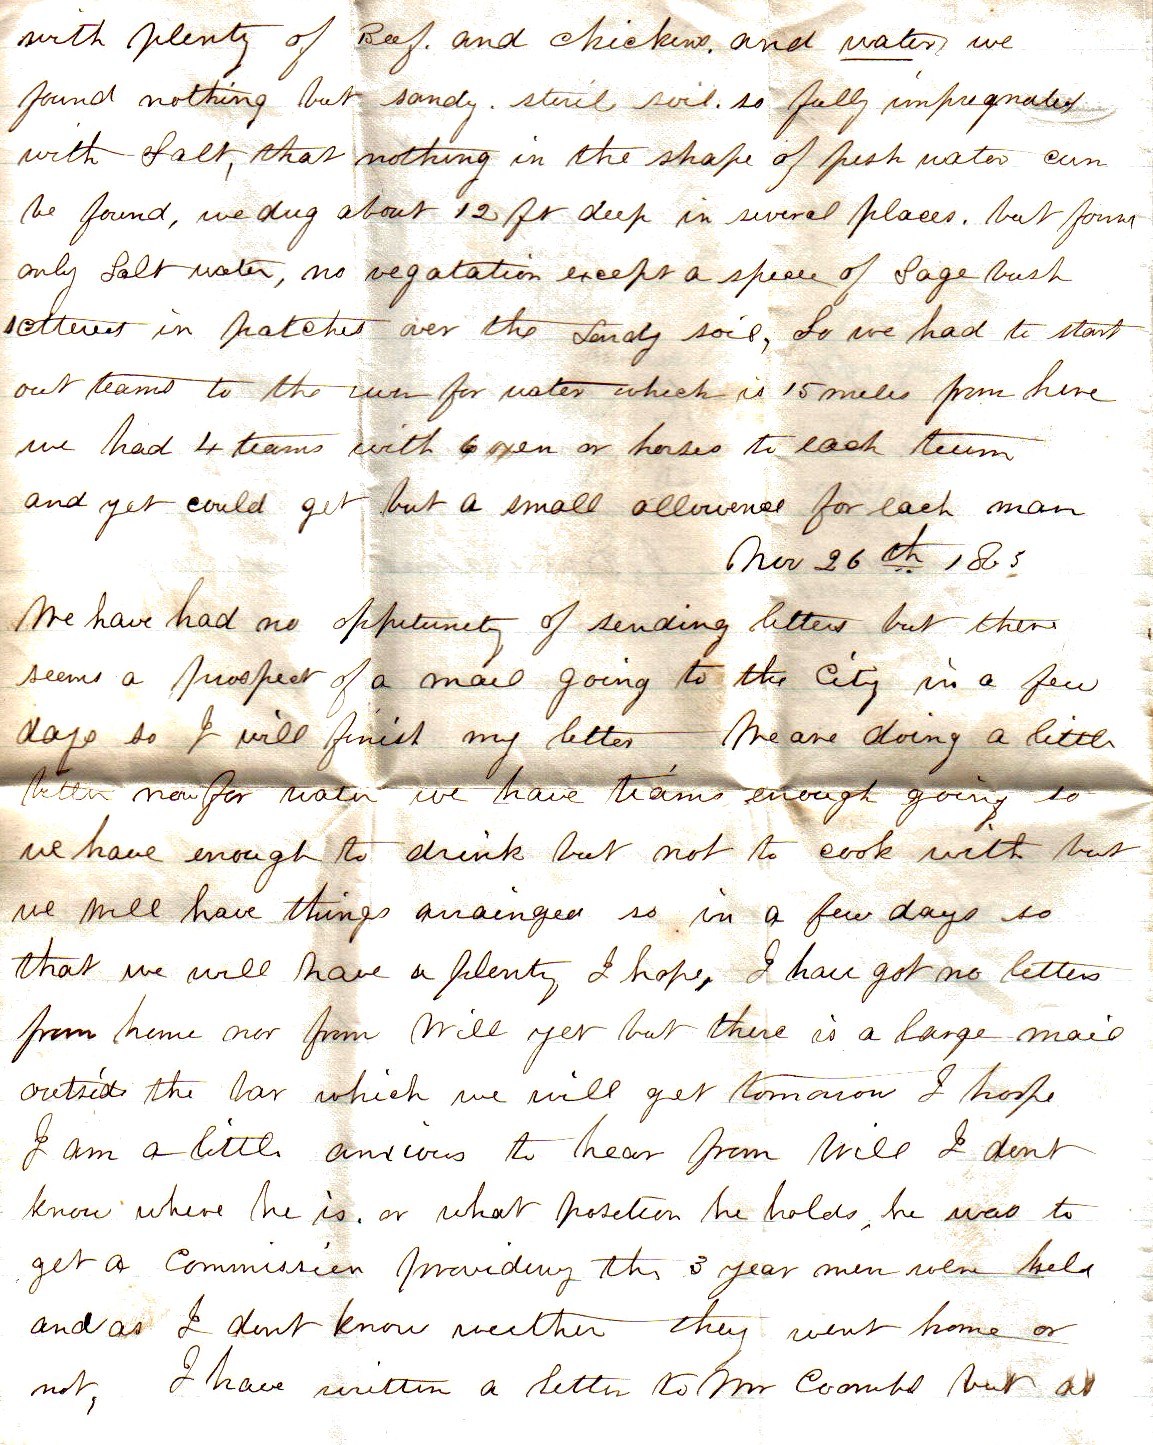 with plenty of Beef. and chickens. and water, we
found nothing but sandy. steril soil. so fully impregnated
with Salt, that nothing in the shape of fresh water can
be found, we dug about 12 ft deep in several places. but found
only Salt water, no vegatation except a specie of Sage bush
scttered in patches over the Sandy soil, So we had to start
out teams to the for water which is 15 miles from here
we had 4 teams with 6 oxen or horses to each team
and yet could get but a small allowence for each man
Nov 26 th 1865
We have had no oppitunity of sending letters but there
seems a prospect of a mail going to the City in a few
days so I will finish my letter We are doing a little
better now for water we have teams enough going so
we have enough to drink but not to cook with but
we will have things arrainged so in a few days so
that we will have a plenty I hope, I have got no letters
from home nor from Will yet but there is a large mail
outside the bar which we will get tomorrow I hope
I am a little anxious to hear from Will I dont
know where he is. or what position he holds, he was to
get a Commission providing the 3 year men were held
and as I dont know weither they went home or
not, I have written a letter to Mr Coombs but as